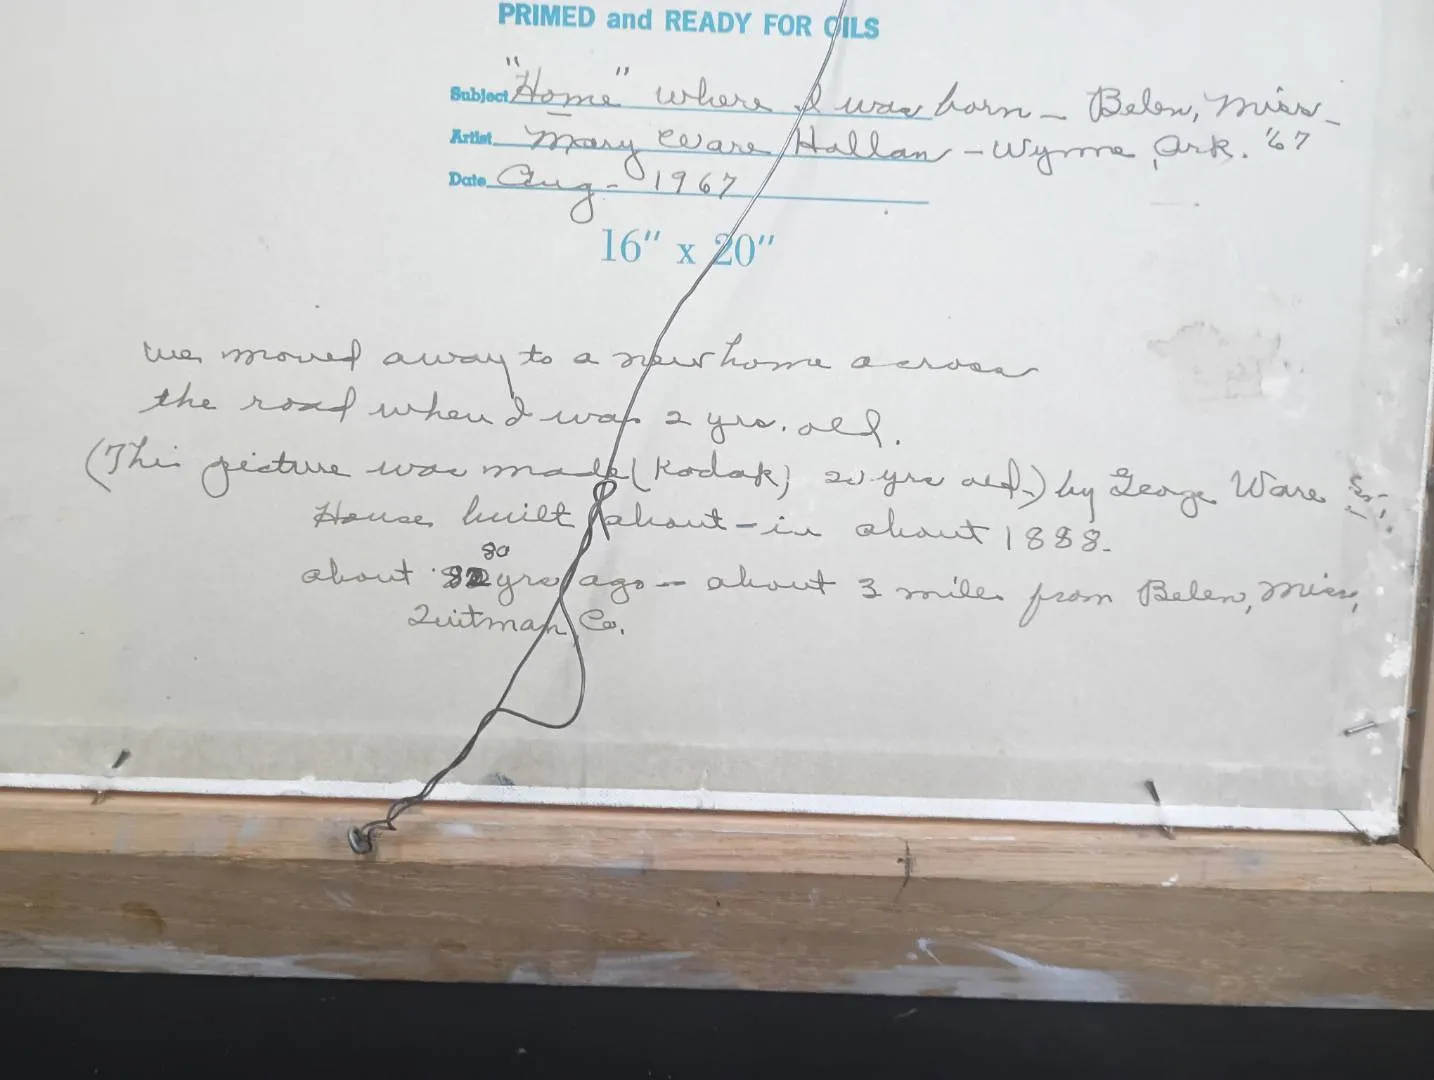 PRIMED and READY FOR OILS
Subject "Home" where I was born - Belen, Miss -
Artist Mary Ware Hallan - Wynne, Ark. '67
Date Aug - 1967
16" x 20"
we moved away to a new home across
the road when I was 2 yrs. old.
(This picture was made (Kodak) 20 yrs old.) by George Ware Sr.
House built about - in about 1888.
80
about 82 yrs ago - about 3 miles from Belen, Miss,
Quitman Co.